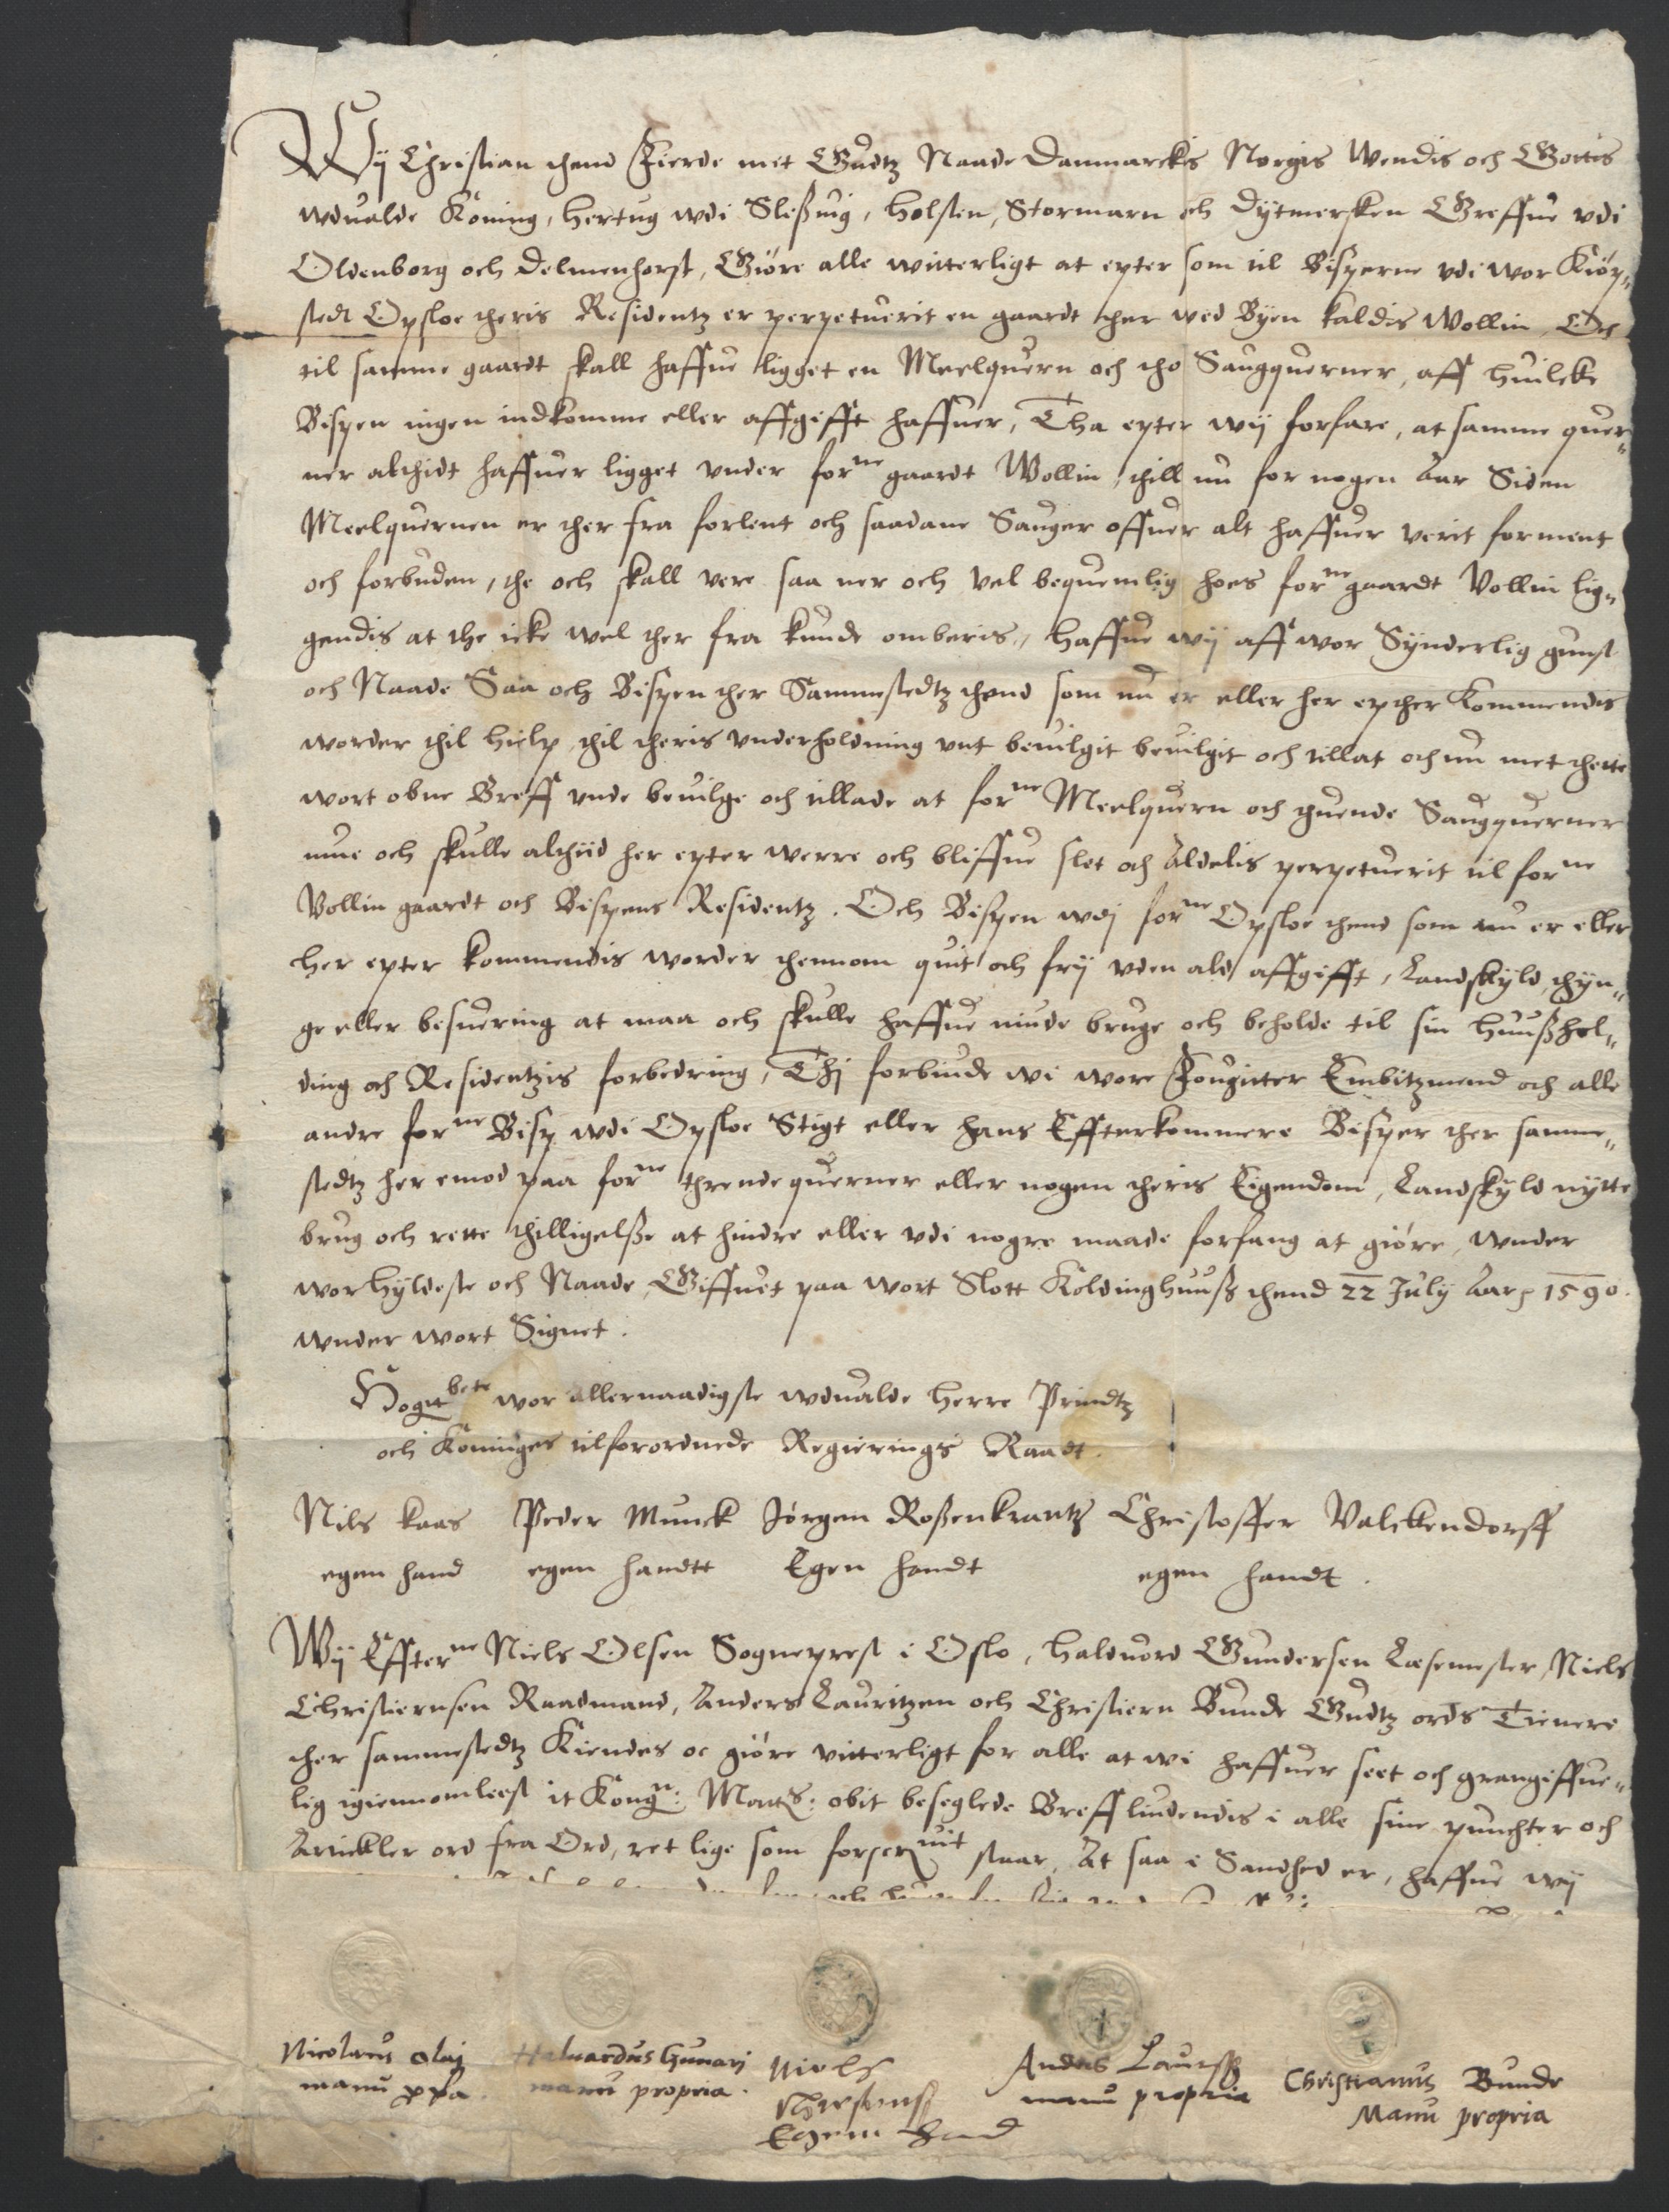 Wij Christian thend Fierde met Gudtz Naade Danmarckis Norgis Wendis och Gottis
wdualde Koning, Hertug wdi Sleßuig, Holsten, Stormarn och Dytmersken Greffue vdi
Oldenborg och Delmenhorst, Giøre alle witterligt at epter som til Bisperne vdi wor Kiøp„
stedt Opsloe theris Residentz er perpetuerit en gaardt ther wed Byen kaldis Wollin, Och
til samme gaardt skall haffue ligget en Meelquern och tho Saugquerner, aff huilcke
Bispen ingen indkomme eller affgifft haffuer, Tha epter wij forfare, at samme quer„
ner altidt haffuer ligget vnder forne gaardt Wollin, thill nu for nogen Aar Siden
Meelquernen er ther fra forlent och saadane Sauger offuer alt haffuer verit forment
och forbuden, the och skall vere saa ner och vel bequemlig hoes forne gaardt Vollin lig„
gendis at the icke wel ther fra kunde omberis, Haffue wij aff wor Synderlig gunst
och Naade Saa och Bispen ther Sammestedtz thend som nu er eller her epther Kommendis
worder thil hielp thil theris vnderholdning vnt beuilgit beuilgit och tillat och nu met thette
wort obne Breff vnde beuilge och tillade at forne Meelquern och thuende Saugquerner
mue och skulle althiid her epter werre och bliffue slet och Aldelis perpetuerit til forne
Vollin gaardt och Bispens Residentz. Och Bispen wdj forne Opsloe thend som nu er eller
her epter kommendis worder thennom quit och frij vden ald affgifft, Landskyld, thyn„
ge eller besuering at maa och skulle haffue niude bruge och beholde til sin Huußhol„
ding och Residentzis forbedring, Thj forbiude wi wore Fougitter Embitzmend och alle
andre forne Bisp wdi Opsloe Stigt eller hans Effterkommere Bisper ther samme„
stedtz her emod paa forne thrende querner eller nogen theris Eigendom, Landskyld nytte
brug och rette thilligelße at hindre eller vdi nogre maade forfang at giøre, wnder
wor Hyldeste och Naade, Giffuet paa wort Slott Koldinghuuß thend 22 July Aar 1590.
wnder wort Signet.
Høgstbete wor Allernaadigste wduolde Herre Prindtz
och Koninges tilforordnede Regierings Raadt.
Nils kaas Peder Munck Jørgen Roßenkrantz Christoffer Valckendorff
egen hand egen handtt Egen handt egen handt.
Wij Effterne Niels Olsen Sogneprest i Oslo, Haluord Gundersen Læsemester, Niels
Christiernsen Raadmand, Anders Lauritzen och Christiern Bunde Gudtz ords Tienere
ther sammestedtz Kiendes oc giøre vitterligt for alle at wi haffuer seet och grangiffue„
lig igiennomleest it Kong: Matts: obit beseglede Breff liudendis i alle sine punchter och
Artickler ord fra Ord, ret lige som forscruit staar, At saa i Sandhed er, haffue wij
Nicolaus Olaj Haluardus Gunarj Niels Anders Laurssz Christianus Bunde
manu ppa. manu propria. Christenß manu propria Manu propria
Egenn Hand